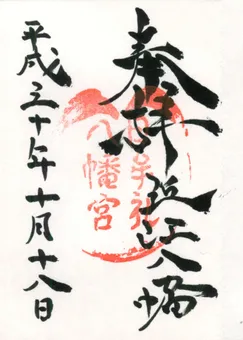 奉拝
近江八幡
日牟礼
八幡宮
平成三十年十月十八日